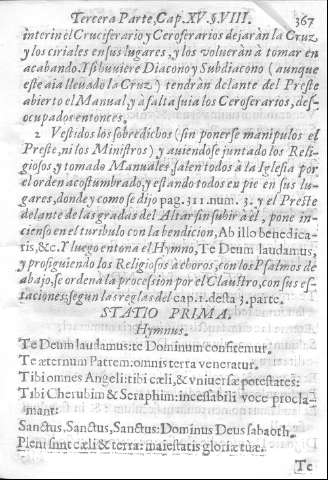 Tercera Parte, Cap. XV. §. VIII. 367
interin el Cruciferario y Ceroferarios dejaràn la Cruz
y los ciriales en sus lugares, y los volveràn à tomar en
acabando. Y si huviere Diacono y Subdiacono (aunque
este aia llevado la Cruz) tendràn delante del Preste
abierto el Manual, y à falta suia los Ceroferarios, des-
ocupados entonces.
2 Vestidos los sobredichos (sin ponerse manipulos el
Preste, ni los Ministros) y aviendose juntado los Reli-
giosos, y tomado Manuales, salen todos à la Iglesia por
el orden acostumbrado, y estando todos en pie en sus lu-
gares, donde y como se dijo pag. 311 num. 3. y el Preste
delante de las gradas del Altar sin subir à èl, pone in-
cienso en el turibulo con la bendicion, Ab illo benedica-
tis, &c. Y luego entona el Hymno, Te Deum laudamus,
y prosiguiendo los Religiosos à choros, con los Psalmos de
abajo, se ordena la procession por el Claustro, con sus es-
taciones: segun las reglas del cap. 1. desta 3. parte.
STATIO PRIMA.
Hymnus.
Te Deum laudamus: te Dominum confitemur.
Te æternum Patrem: omnis terra veneratur.
Tibi omnes Angeli: tibi cæli, & vniuersæ potestates:
Tibi Cherubim & Seraphim: incessabili voce procla-
mant:
Sanctus, Sanctus, Sanctus: Dominus Deus sabaoth.
Pleni sunt cæli & terra: maiestatis gloriæ tuæ.
Te